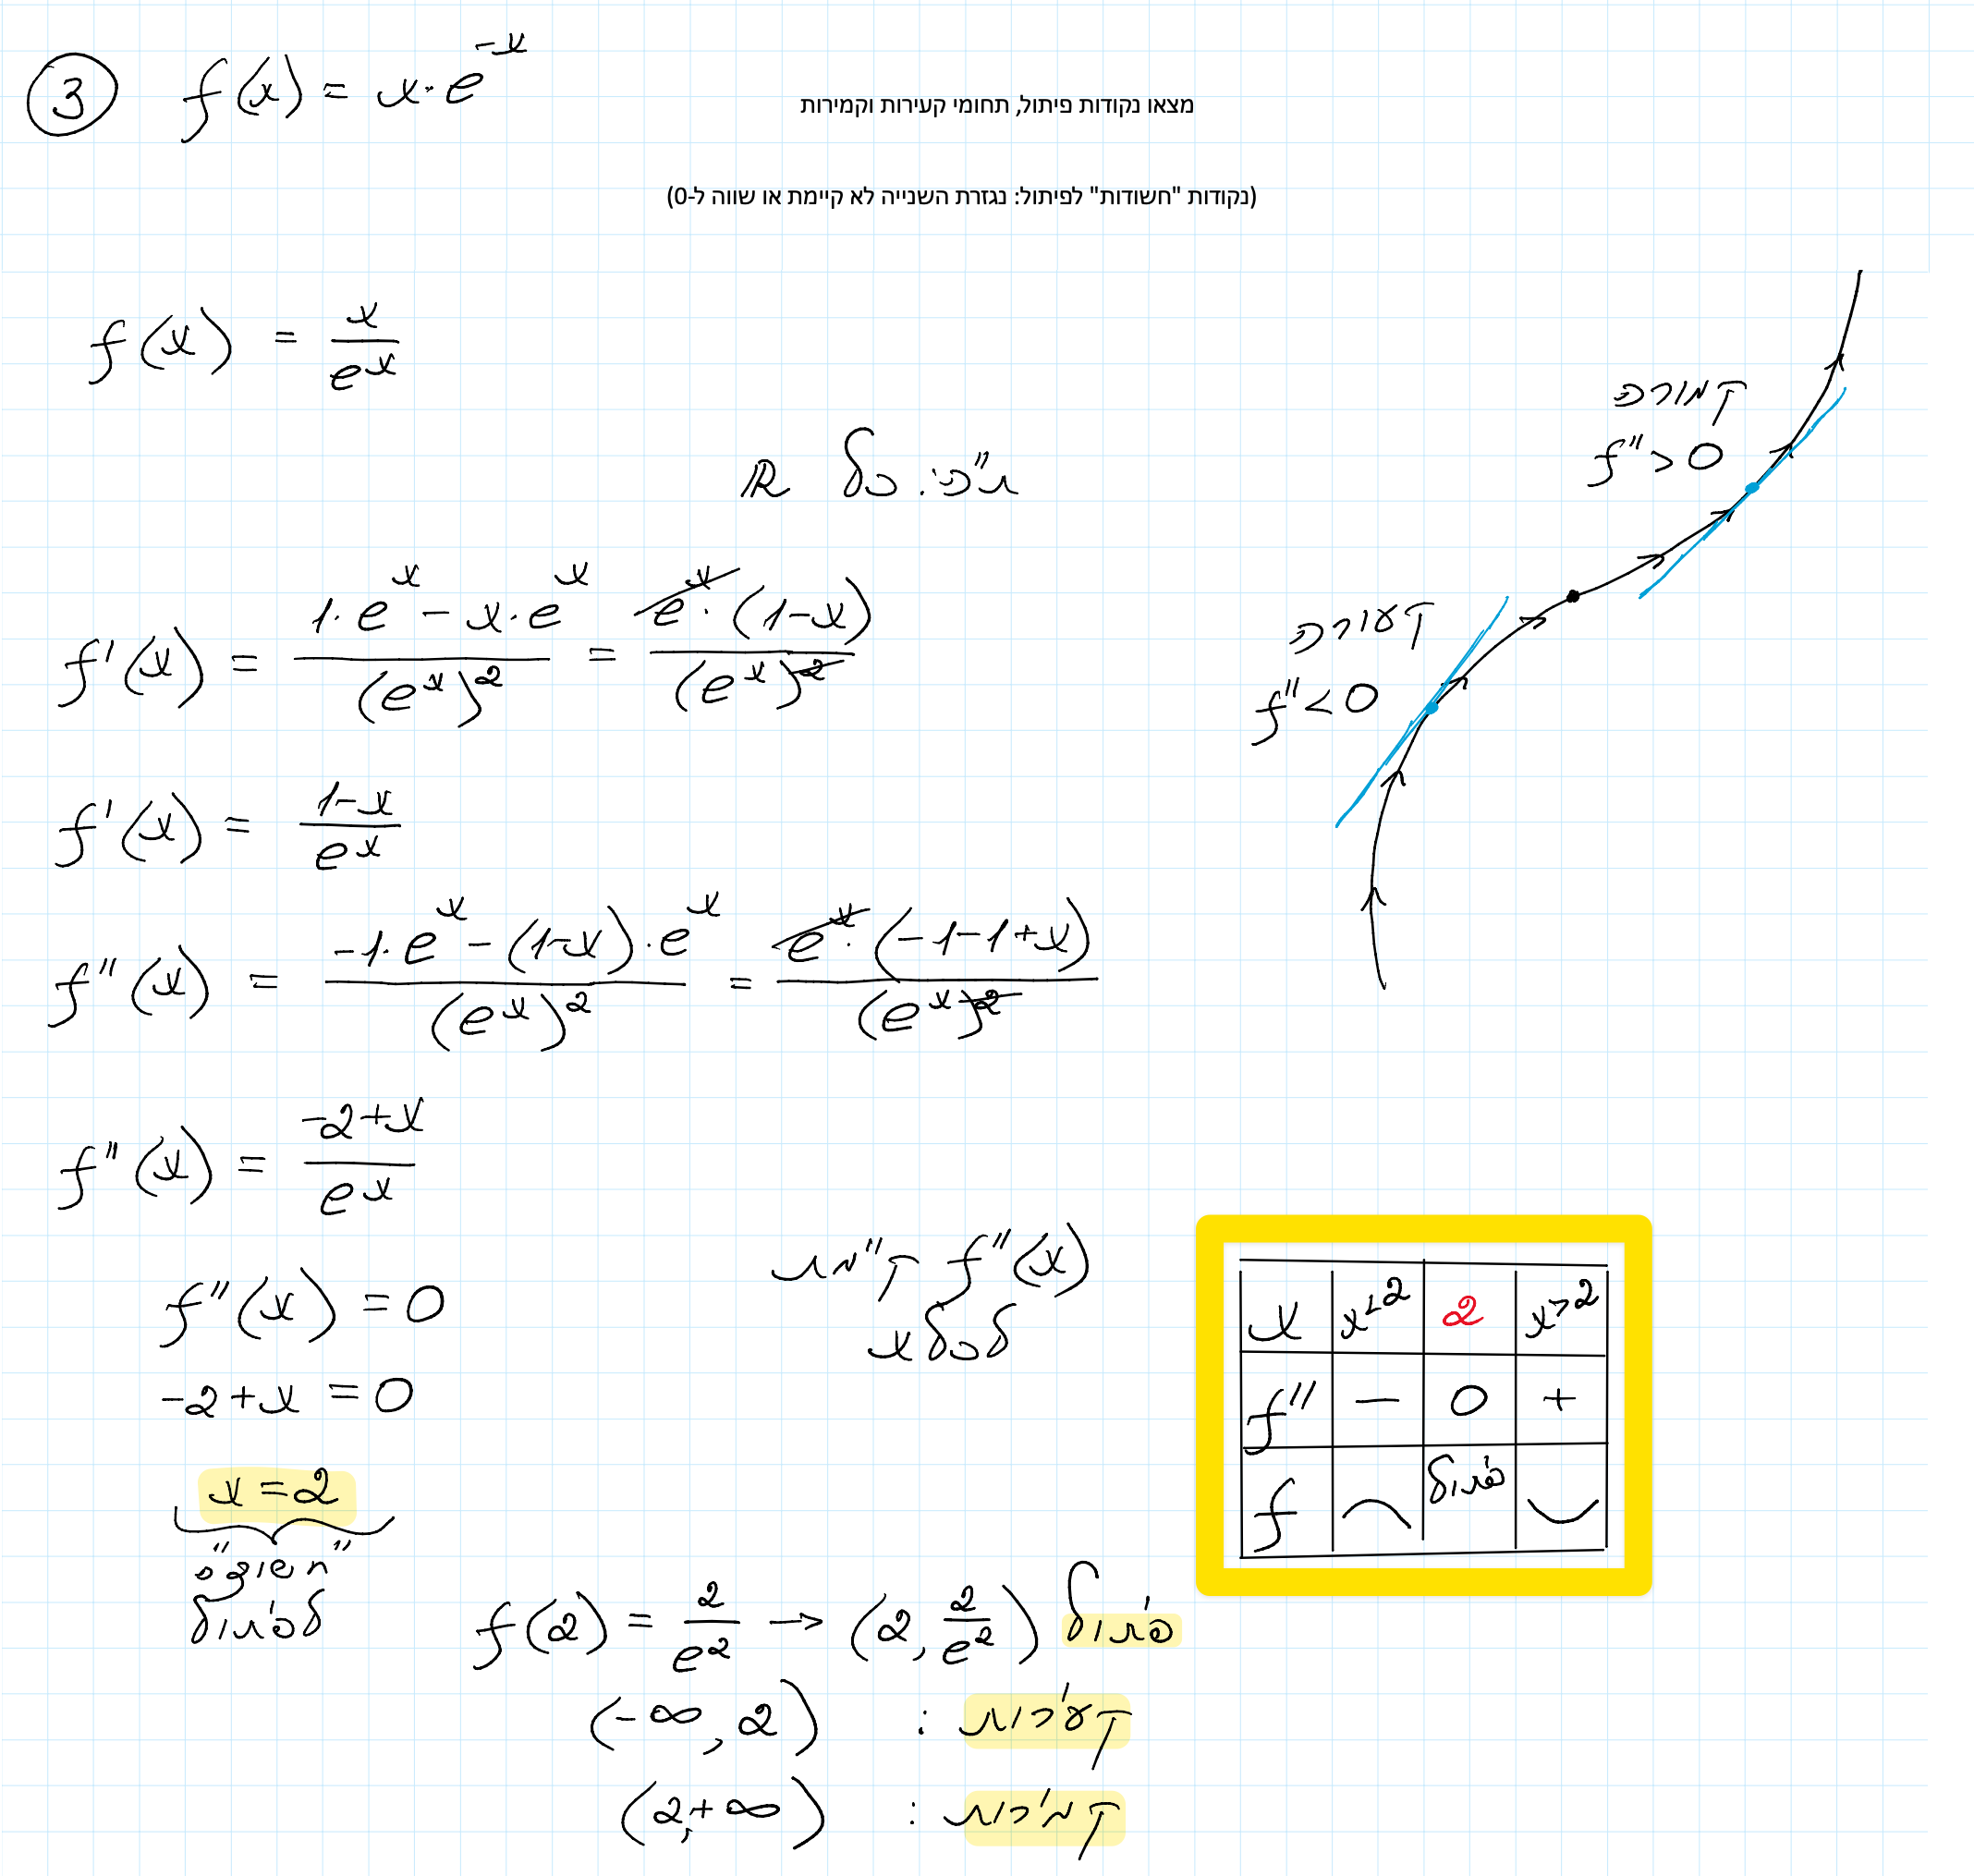 ③ f(x) = x·e^{-x}
מצאו נקודות פיתול, תחומי קעירות וקמירות
(נקודות "חשודות" לפיתול: נגזרת השנייה לא קיימת או שווה ל-0)
f(x) = x/e^x
ת"ה: כל ℝ
קמורה
f''>0
קעורה
f''<0
f'(x) = (1·e^x - x·e^x)/(e^x)^2 = (e^x·(1-x))/(e^x)^2
f'(x) = (1-x)/e^x
f''(x) = (-1·e^x - (1-x)·e^x)/(e^x)^2 = (e^x·(-1-1+x))/(e^x)^2
f''(x) = (-2+x)/e^x
f''(x) קיימת
לכל x
f''(x) = 0
-2+x = 0
x = 2
"חשודה"
לפיתול
x | x<2 | 2 | x>2
f'' | − | 0 | +
f | ⌢ | פיתול | ⌣
f(2) = 2/e^2 → (2, 2/e^2) פיתול
קעירות: (-∞, 2)
קמירות: (2, +∞)